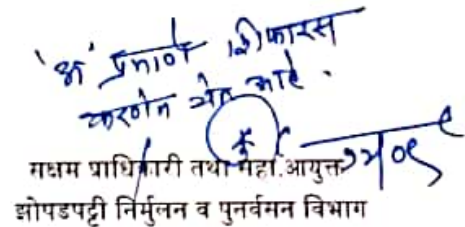 'अ' प्रमाणे शिफारस
करणेत येत आहे.
सक्षम प्राधिकारी तथा सहा.आयुक्त
झोपडपट्टी निर्मुलन व पुनर्वसन विभाग